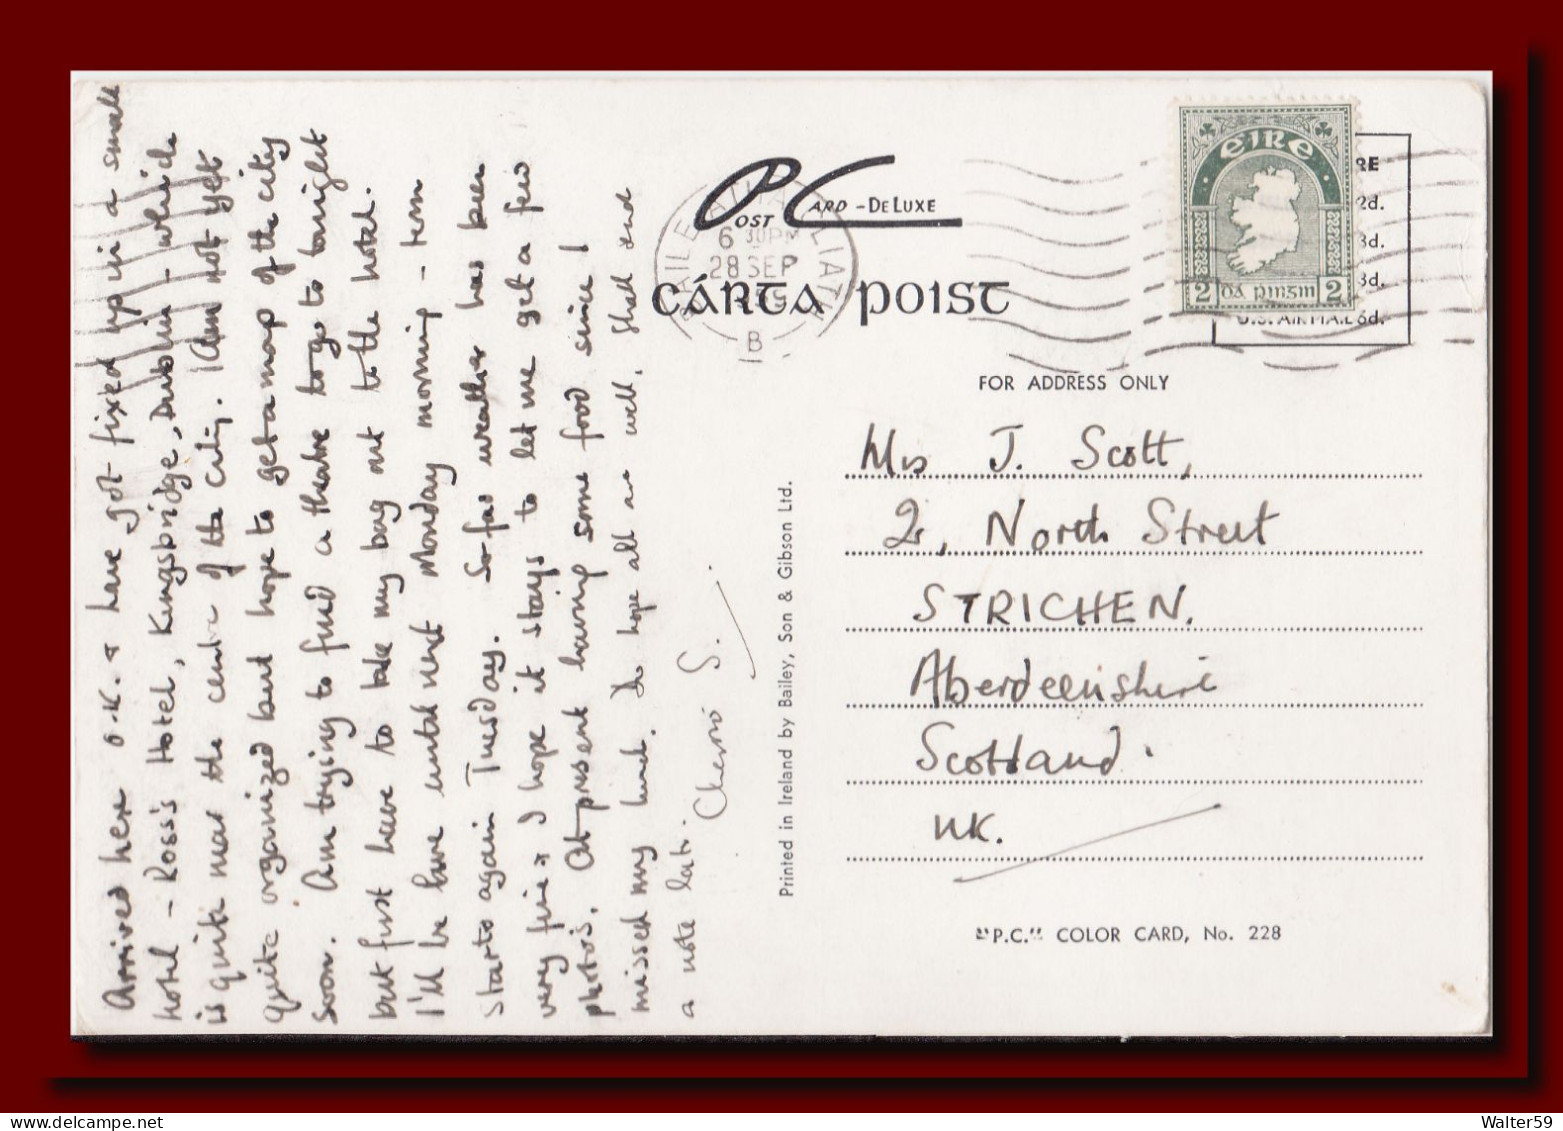 Arrived here O.K. & have got fixed up in a small
hotel - Ross's Hotel, Kingsbridge, Dublin - which
is quite near the centre of the city. (Am not yet
quite organized but hope to get a map of the city
soon. Am trying to find a theatre to go to tonight
but first have to take my bag out to the hotel.
I'll be here until next Monday morning - term
starts again Tuesday. So far weather has been
very fine & I hope it stays to let me get a few
photos. At present having some food since I
missed my lunch. Do hope all are well, shall send
a note later.
Cheerio S.
POST CARD - DE LUXE
CÁRTA POIST
BAILE ÁTHA CLIATH
6 30PM
28 SEP
B
éire
2 dá pinginn 2
RE
2d.
3d.
3d.
U.S. AIRMAIL 6d.
FOR ADDRESS ONLY
Mrs J. Scott,
2, North Street
STRICHEN.
Aberdeenshire
Scotland.
UK.
Printed in Ireland by Bailey, Son & Gibson Ltd.
"P.C." COLOR CARD, No. 228
Walter59